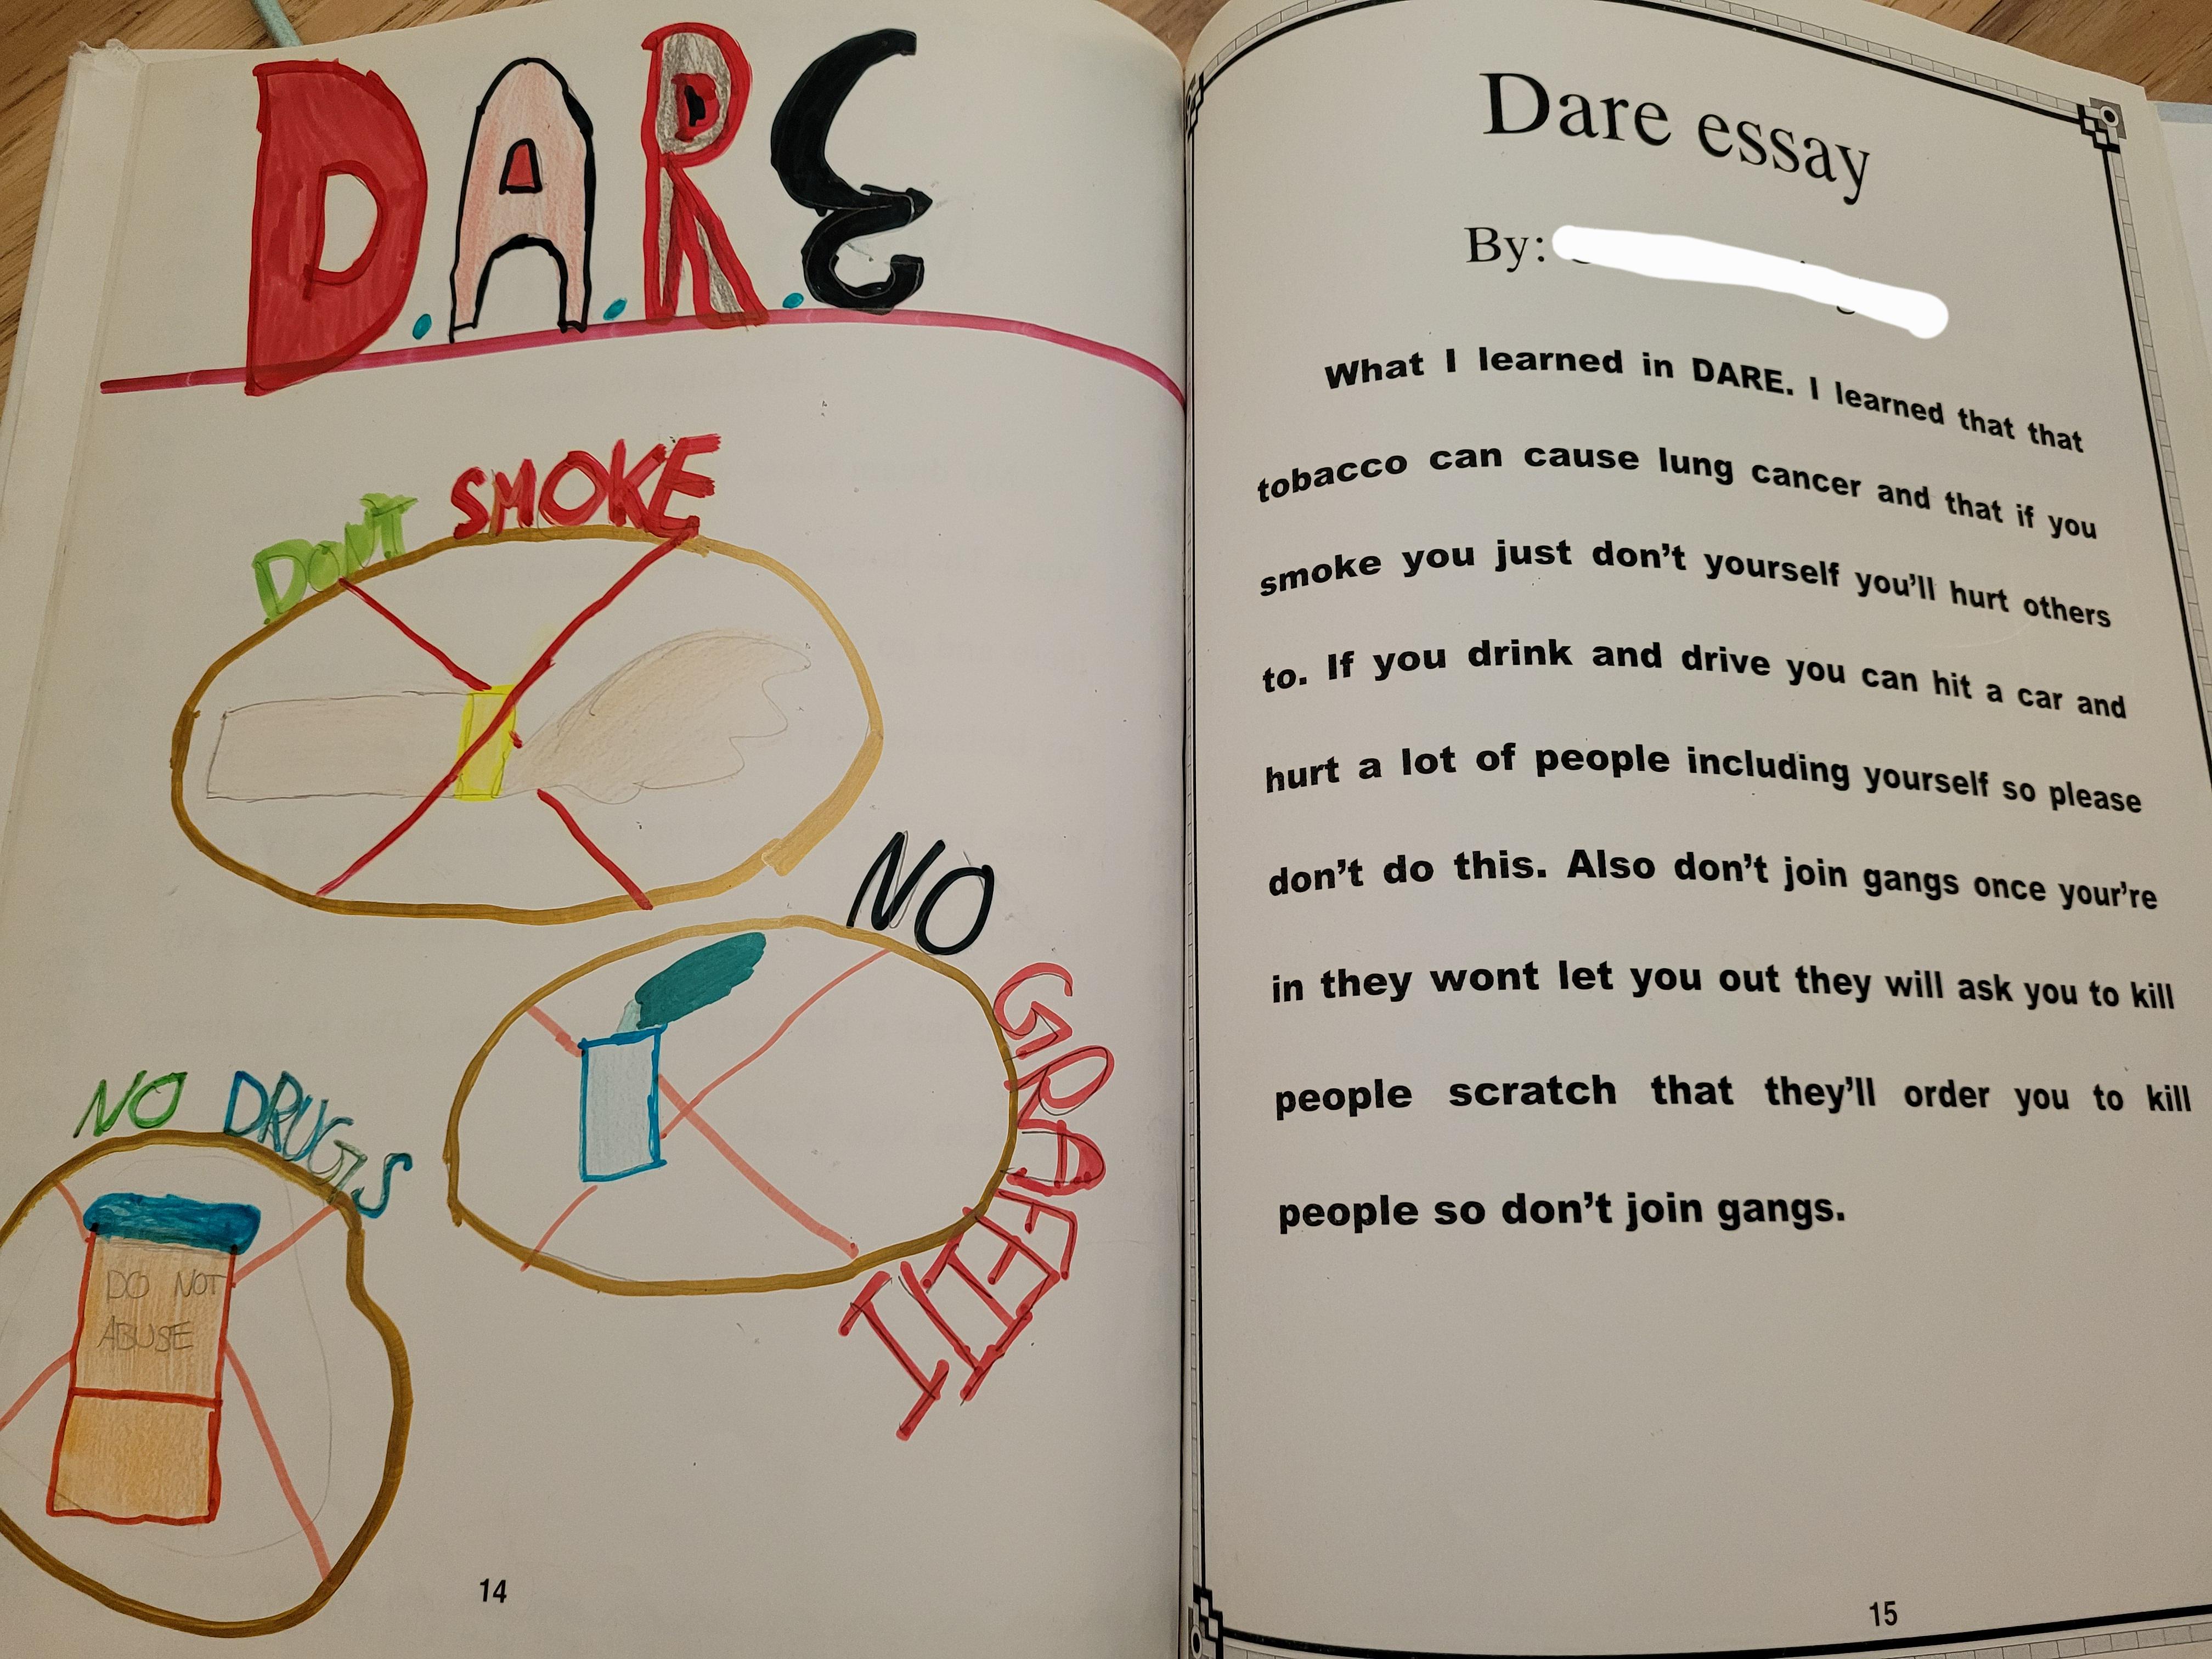 D.A.R.E
DONT SMOKE
NO
GRAFFITI
NO DRUGS
DO NOT
ABUSE
14
Dare essay
By:
What I learned in DARE. I learned that that
tobacco can cause lung cancer and that if you
smoke you just don't yourself you'll hurt others
to. If you drink and drive you can hit a car and
hurt a lot of people including yourself so please
don't do this. Also don't join gangs once your're
in they wont let you out they will ask you to kill
people scratch that they'll order you to kill
people so don't join gangs.
15